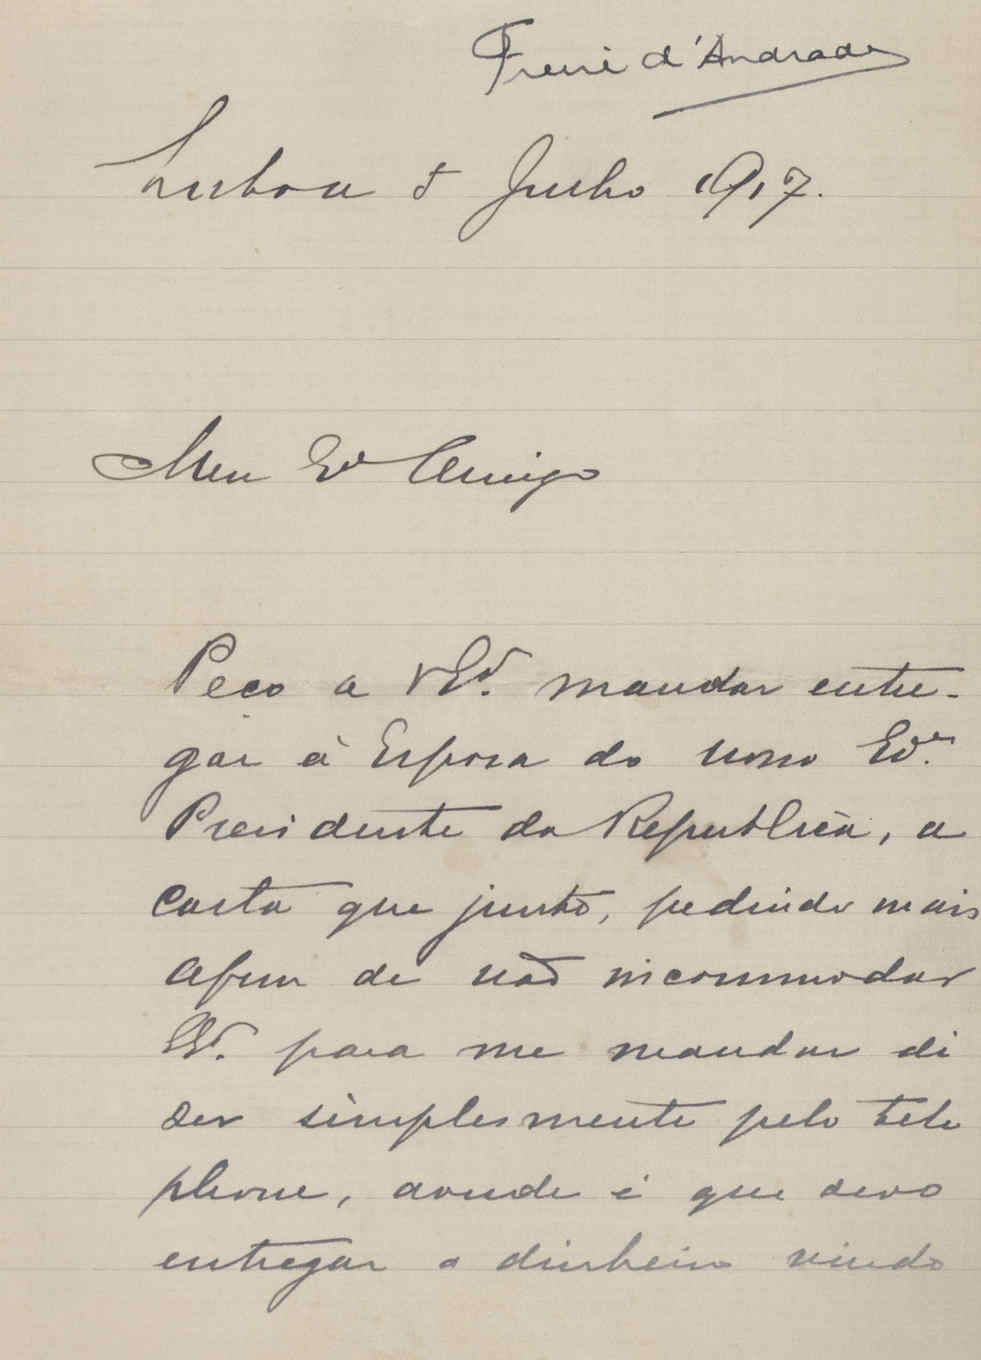 Freire d'Andrade
Lisboa 5 Junho 1917.
Meu Exº Amigo
Peço a V Exª. mandar entre-
gar á Esposa do nosso Exº.
Presidente da Republica, a
carta que junto, pedindo mais
afim de não incommodar
V Exª. para me mandar di
zer simplesmente pelo tele
phone, aonde é que devo
entregar o dinheiro vindo